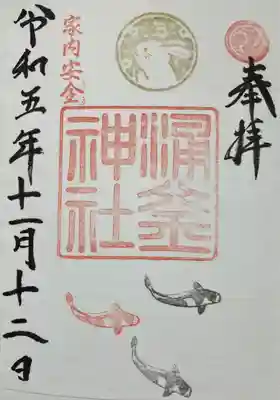 奉拝
涌釜神社
家内安全
令和五年十一月十二日